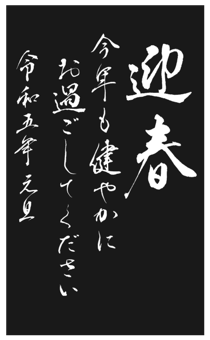 迎春
今年も健やかに
お過ごしてください
令和五年元旦